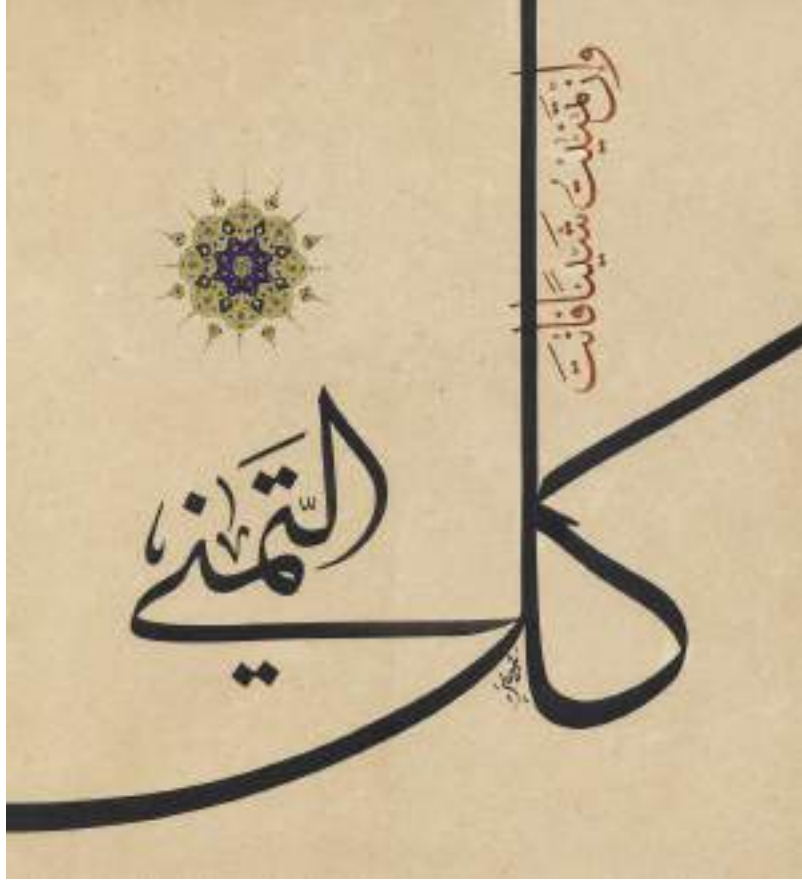 وإن تمنيت شيئا فأنت
كل التمني